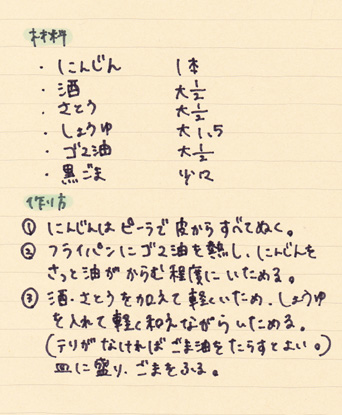 材料
・ にんじん 1本
・ 酒 大1/2
・ さとう 大1/2
・ しょうゆ 大1.5
・ ゴマ油 大1/2
・ 黒ごま 少々
作り方
① にんじんはピーラで皮からすべてぬく。
② フライパンにゴマ油を熱し、にんじんを
さっと油がからむ程度にいためる。
③ 酒・さとうを加えて軽くいため、しょうゆ
を入れて軽く和えながらいためる。
(テリがなければごま油をたらすとよい。)
皿に盛り、ごまをふる。